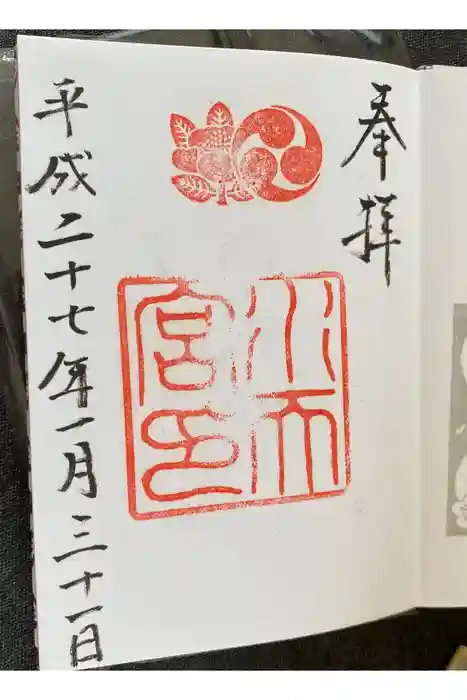 奉拝
川天宮印
平成二十七年一月三十一日